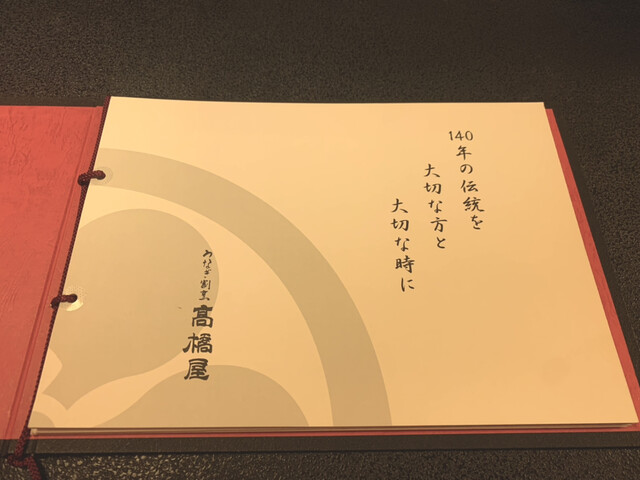 140年の伝統を
大切な方と
大切な時に
うなぎ・割烹
髙橋屋